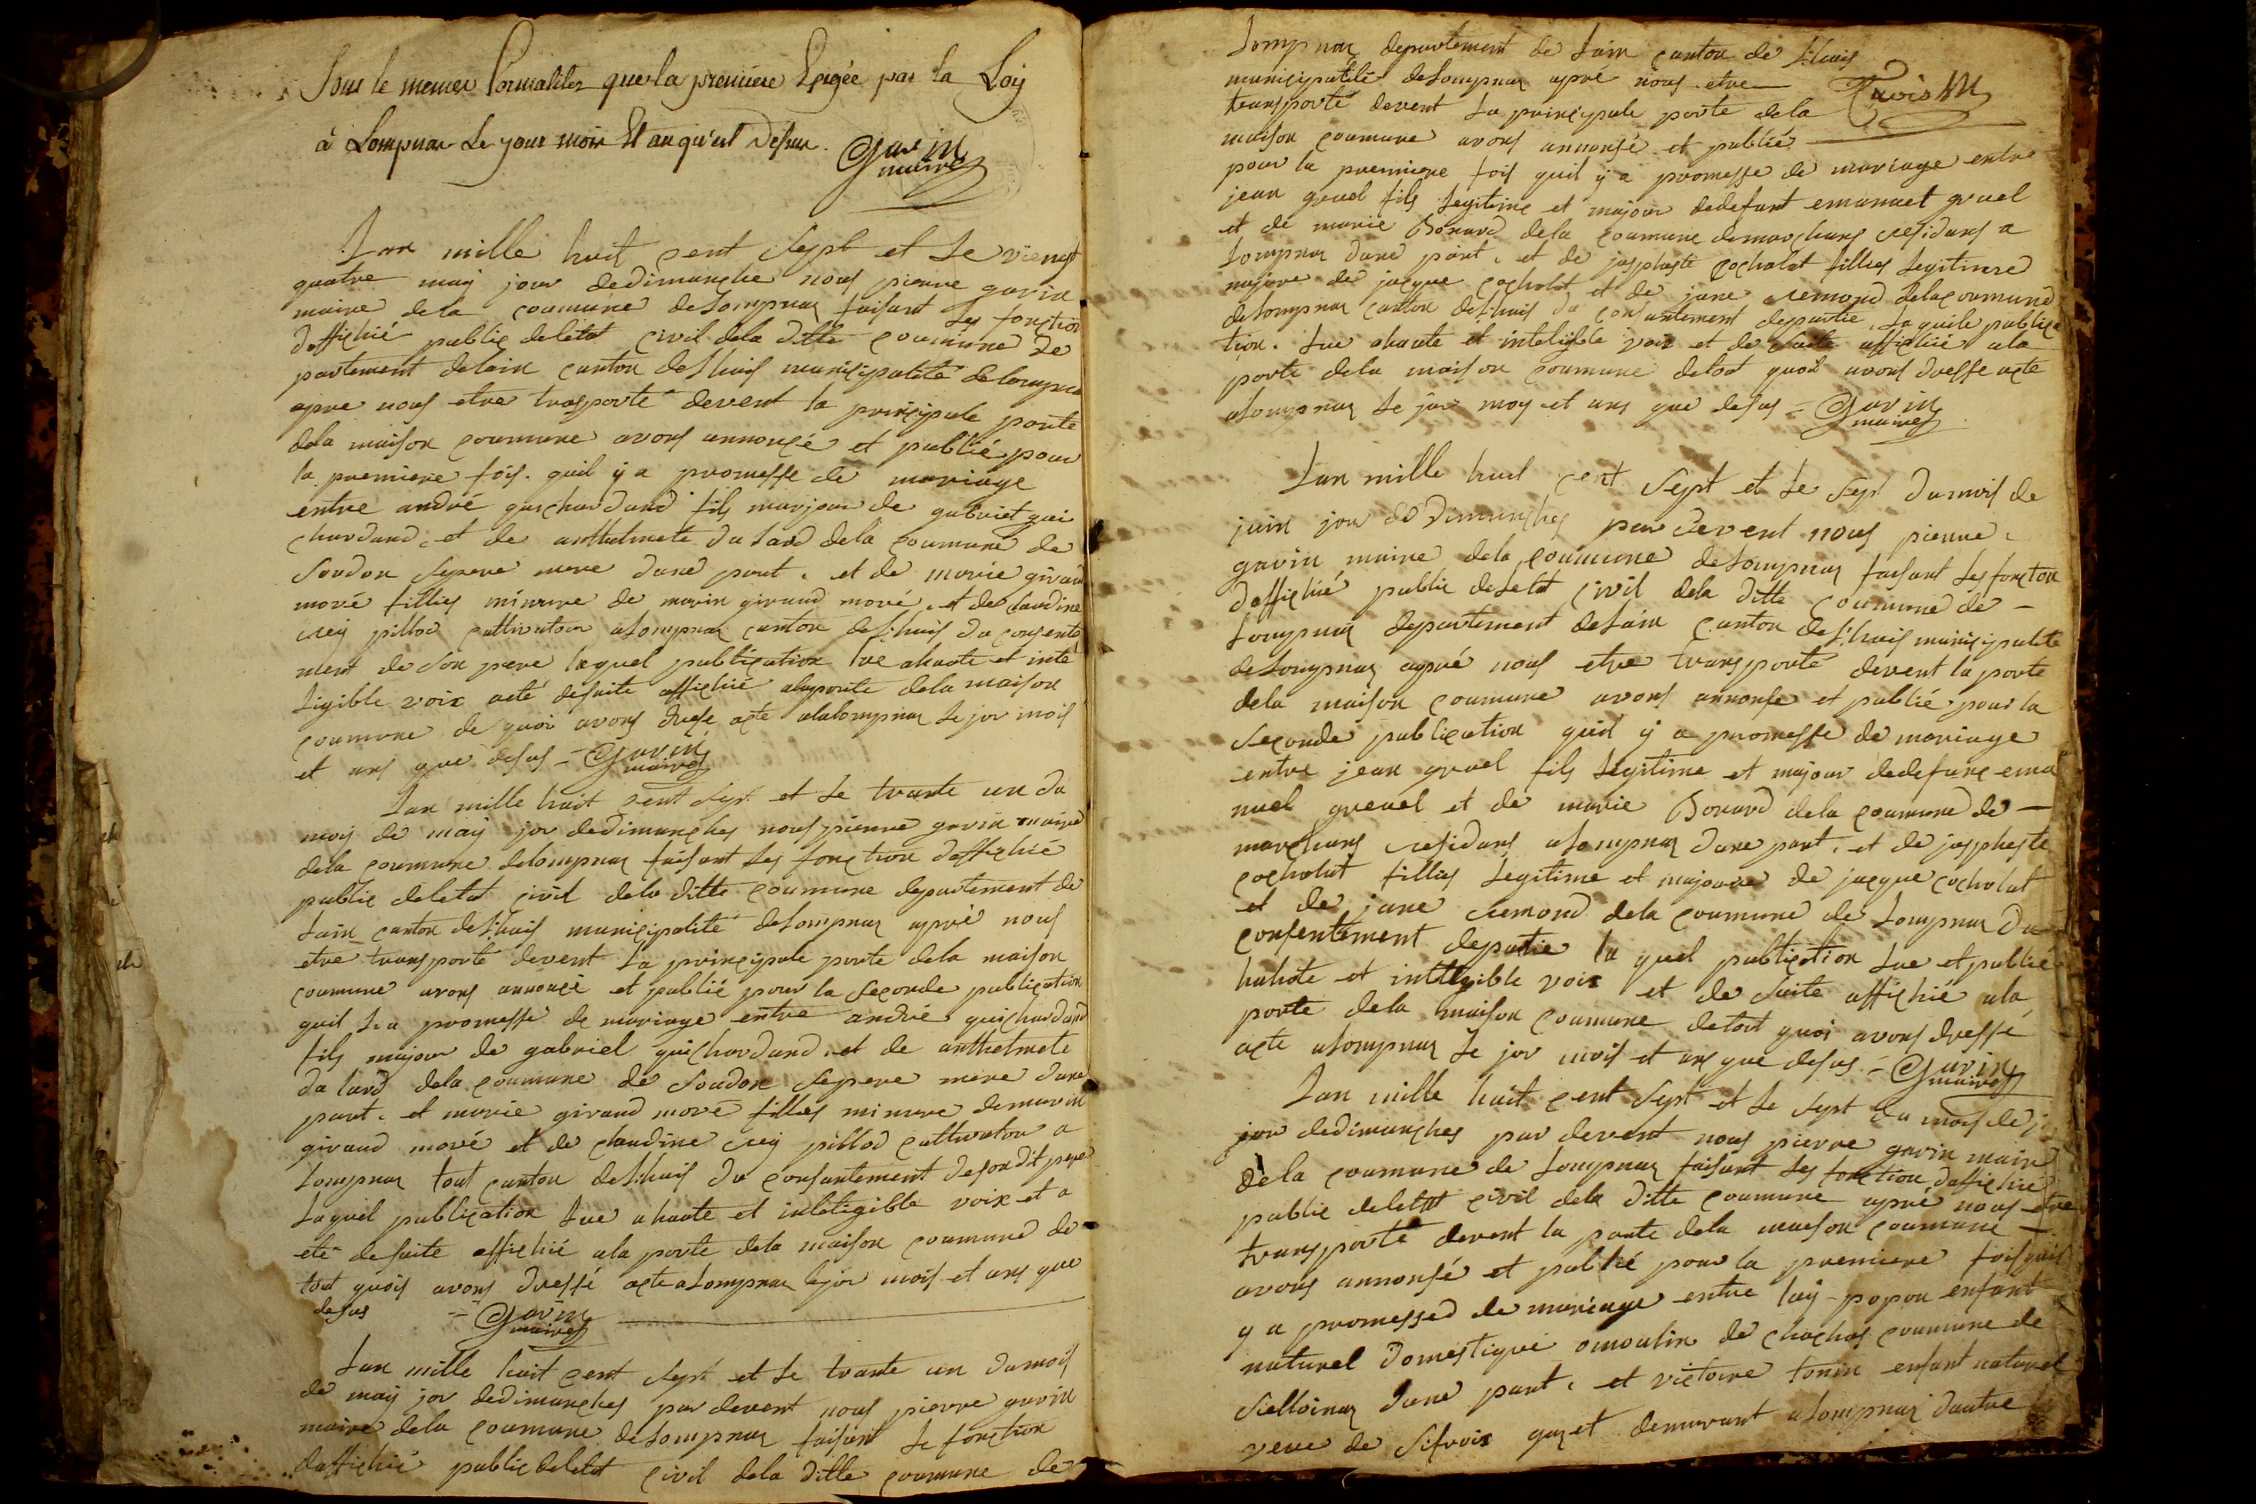 Sous le memes formalites que la premiere Exigée par la Loy
à Lompnas Le jour mois Et an qu'est Desus. Gavin
maire
Lan mille huit cent sept et le vienst
quatre maij jour dedimanche nous pierre gavin
maire dela coumune deLompnas faisant les fonction
daffichié public deletat civil dela ditte coumune de
partement delain canton deLhuis municipalité delompnas
apre nous etre trasporté devent la principale porte
dela maison coumune avons annoncé et publié pour
la premiere fois. quil y a promesse de mariage
entre andré guichardand fils marjour de gabriet gui
chardand, et de anthelmete du lard dela coumune de
Soudon sepere mere dune part. et de marie giraud
moré fillies mineure de marin giraud moré, et de claudine
rey pillod cultivatour aLompnas canton deLhuis du consente
ment de son pere laquel publication lue ahaute et inte
ligible voix aété desuite affichié alaporte dela maison
coumune de quoi avons dresé acte alalompnas le jor mois
et ans que desus = Gavin
maire
Lan mille huit cent sept et le trante un du
moy de may jor dedimanches nous pierre gavin maire
dela coumune delompnas faisant les fonction daffichié
public deletat civil dela ditte coumune departement de
Lain canton deLhuis municipalité deLompnas apré nous
etre transporté devent La principale porte dela maison
coumune avons annoncé et publié pour la seconde publication
quil y a promesse de mariage entre andré guichardand
fils majour de gabriel guichardand, et de anthelmete
du lard dela coumune de Soudon sepere mere dune
part. et marie giraud moré fillies mineure demarin
giraud moré et de claudine rey pillod cultivatour a
Lompnas tout canton deLhuis du consantement desondit pere
Laquel publication Lue ahaute et inteligible voix et a
eté desuite affichié ala porte dela maison coumune de
tout quois avons dressé acte aLompnas lejor mois et ans que
desus = Gavin
maire
Lan mille huit cent sept et le trante un dumois
de maij jor dedimanches par devent nous pierre gavin
maire dela coumune deLompnas faisant le fonction
daffichié public deletat civil dela ditte coumune de
Lompnas departement de Lain canton de Lhuis
municipalité deLompnas apré nous etre
transporté devent La principale porte dela
maison coumune avons annonsé et publié
pour la premiere fois quil y a promesse de mariage entre
jean gruel fils legitime et majour dedefunt emanuel gruel
et de marie Bonard dela coumune demarchans residans a
Lompnas dune part. et de josphaste cocholat fillies legitimes
majore de jacque cocholat et de jane remond delacoumune
deLompnas canton deLhuis du consantement departie, laquele publica
tion. Lue ahaute et inteligible voix et de suite affichié ala
porte dela maison coumune detout quoi avons dresse acte
aLompnas Le jor moy et ans que desus = Gavin
maire
Lan mille huit cent sept et le sept dumois de
juin jour de Dimanches par devent nous pierre
gavin maire dela coumune deLompnas faisant les fonction
daffichié public deletat civil dela ditte coumune de
Lompnas departement deLain canton deLhuis municipalité
deLompnas apré nous etre transporté devent la porte
dela maison coumune avons annonse et publié pour la
seconde publication quil y a promesse de mariage
entre jean gruel fils legitime et majour dedefunt ema
nuel greuel et de marie Bonard dela coumune de
marchans residans aLompnas dune part. et de josphaste
cocholat fillies legitime et majoure de jacque cocholat
et de jane remond dela coumune de Lompnas du
consentement departie la quel publication Lue et publié
hahote et intligible voix et de suite affichié ala
porte dela maison coumune detout quoi avons dressé
acte aLompnas le jor mois et ans que desus = Gavin
maire
Lan mille huit cent sept et le sept du mois de
jour dedimanches par devent nous pierre gavin maire
de la coumune de Lompnas faisant les fonction daffichié
public deletat civil dela ditte coumune apré nous etre
transporté devent la porte dela maison coumune
avons annonsé et publié pour la premiere fois quil
y a promessed de mariage entre laij popon enfant
naturel domestique omoulin de coumune de
dune part. et victoire tonin enfant naturel
veue de gaget demurant aLompnas dautre